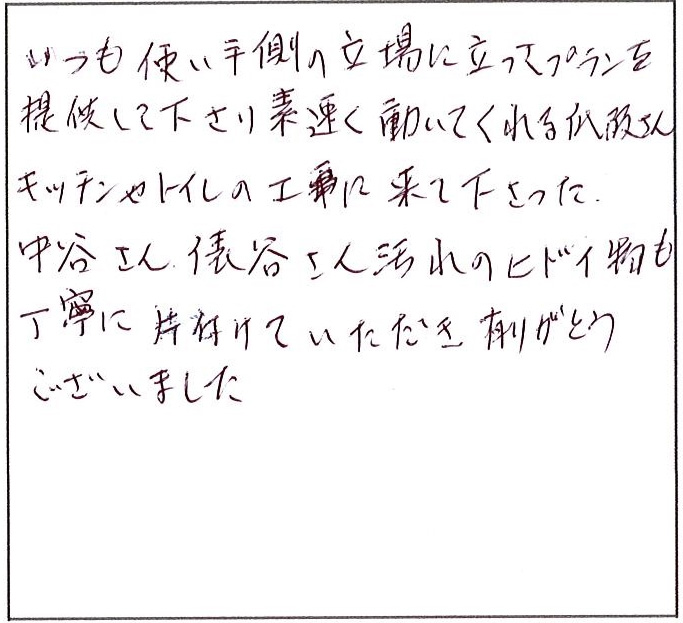 いつも使い手側の立場に立ってプランを
提供して下さり素速く動いてくれる さん
キッチンやトイレの工事に来て下さった.
中谷さん.俵谷さん汚れのヒドイ物も
丁寧に片付けていただき有りがとう
ございました